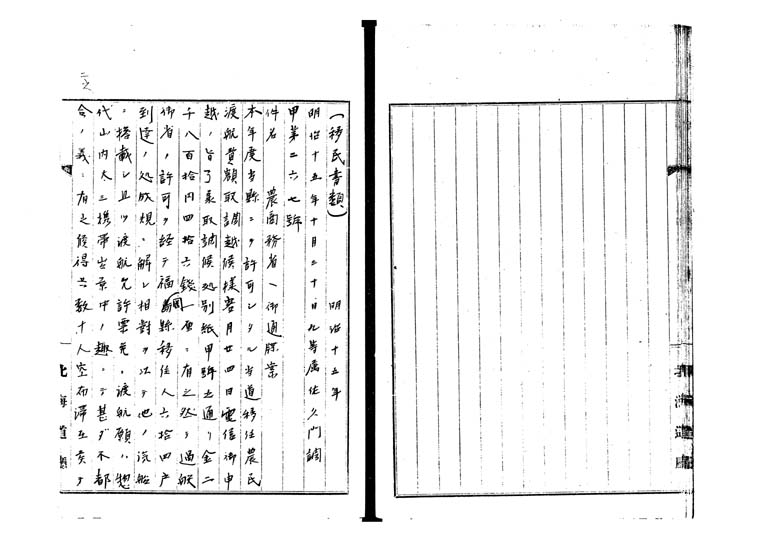 (移民書類)　明治十五年
明治十五年十月三十日九等属佐久門調
甲第二六七号
件名　農商務省ヘ御通牒案
本年度当県ニヲ許可シタル当道移住農民
渡航賃額取調越候様客月廿四日電信御申
越ノ旨了承取調候処別紙甲号之通リ金二
千八百拾円四拾六銭一厘ニ有之然リ過般
御省ノ許可ヲ経テ福岡県移住人六拾四戸
到達ノ処成規ニ解シ相対ヲ以テ他ノ汽船
ニ搭載シ且ツ渡航允許票免ノ渡航願ハ惣
代山内大三携帯出京中ノ趣ニテ甚ダ不都
合ノ義ニ有之候得共数十人空布滞在為テ
北海道
北海道庁